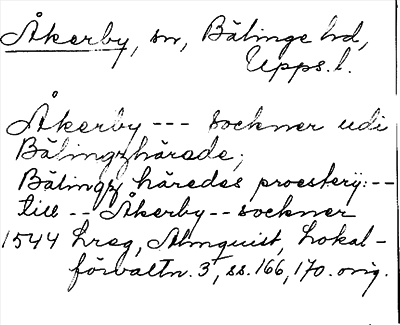 Åkerby, sn, Bälinge hd,
Upps. l.
Åkerby --- sockner udi
Bälingzhärade;
Bälingz häredes proestery: --
till -- Åkerby -- sockner
1544 Lreg, Almquist, Lokal-
förvaltn. 3, ss. 166, 170. orig.